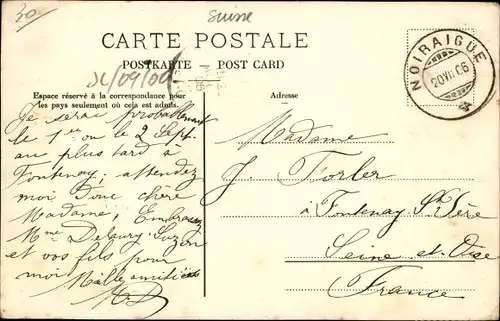 30
Suisse
CARTE POSTALE
POSTKARTE — POST CARD
Espace réservé à la correspondance pour
les pays seulement où cela est admis.
Adresse
NOIRAIGUE
20 VII 06
Je serai probablement
le 1er ou le 2 Sept.
au plus tard à
Fontenay; attendez
moi donc chère
Madame, Embrassez
Mme Suzon
et vos fils pour
moi Mille amitiés
Madame
J Forler
à Fontenay St Père
Seine et Oise
France